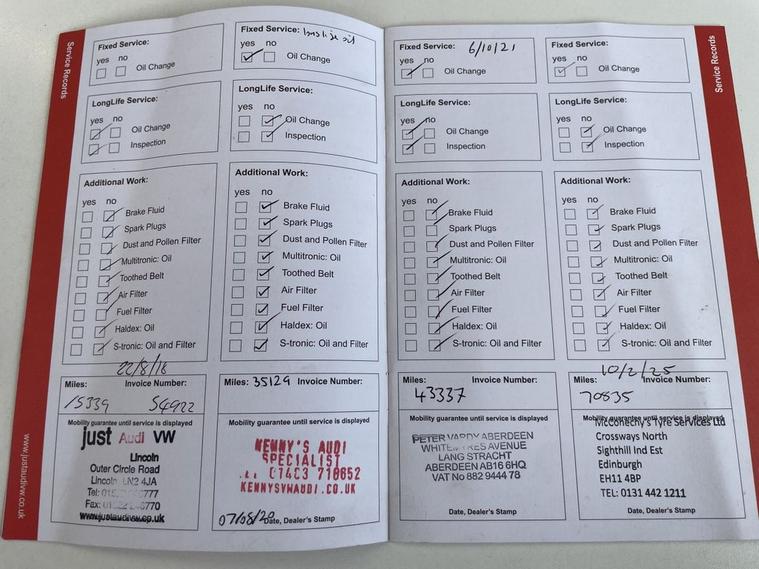 Service Records
www.justaudivw.co.uk
Fixed Service:
yes no
Oil Change
LongLife Service:
yes no
Oil Change
Inspection
Additional Work:
yes no
Brake Fluid
Spark Plugs
Dust and Pollen Filter
Multitronic: Oil
Toothed Belt
Air Filter
Fuel Filter
Haldex: Oil
S-tronic: Oil and Filter
22/8/18
Miles: Invoice Number:
15339 54922
Mobility guarantee until service is displayed
just Audi VW
Lincoln
Outer Circle Road
Lincoln LN2 4JA
Tel:
Fax:
www.justaudivw.co.uk
Fixed Service:
yes no
Oil Change
LongLife Service:
yes no
Oil Change
Inspection
Additional Work:
yes no
Brake Fluid
Spark Plugs
Dust and Pollen Filter
Multitronic: Oil
Toothed Belt
Air Filter
Fuel Filter
Haldex: Oil
S-tronic: Oil and Filter
Miles: 35129 Invoice Number:
Mobility guarantee until service is displayed
KENNY'S AUDI
SPECIALIST
KENNYSVWAUDI.CO.UK
07/08/20 Date, Dealer's Stamp
Fixed Service: 6/10/21
yes no
Oil Change
LongLife Service:
yes no
Oil Change
Inspection
Additional Work:
yes no
Brake Fluid
Spark Plugs
Dust and Pollen Filter
Multitronic: Oil
Toothed Belt
Air Filter
Fuel Filter
Haldex: Oil
S-tronic: Oil and Filter
Miles: Invoice Number:
43337
Mobility guarantee until service is displayed
PETER VARDY ABERDEEN
AVENUE
LANG STRACHT
ABERDEEN AB16 6HQ
VAT No 882 9444 78
Date, Dealer's Stamp
Fixed Service:
yes no
Oil Change
LongLife Service:
yes no
Oil Change
Inspection
Additional Work:
yes no
Brake Fluid
Spark Plugs
Dust and Pollen Filter
Multitronic: Oil
Toothed Belt
Air Filter
Fuel Filter
Haldex: Oil
S-tronic: Oil and Filter
10/2/25
Miles: Invoice Number:
70835
Mobility guarantee until service is displayed
McConechy's Tyre Services Ltd
Crossways North
Sighthill Ind Est
Edinburgh
EH11 4BP
TEL: 0131 442 1211
Date, Dealer's Stamp
Service Records